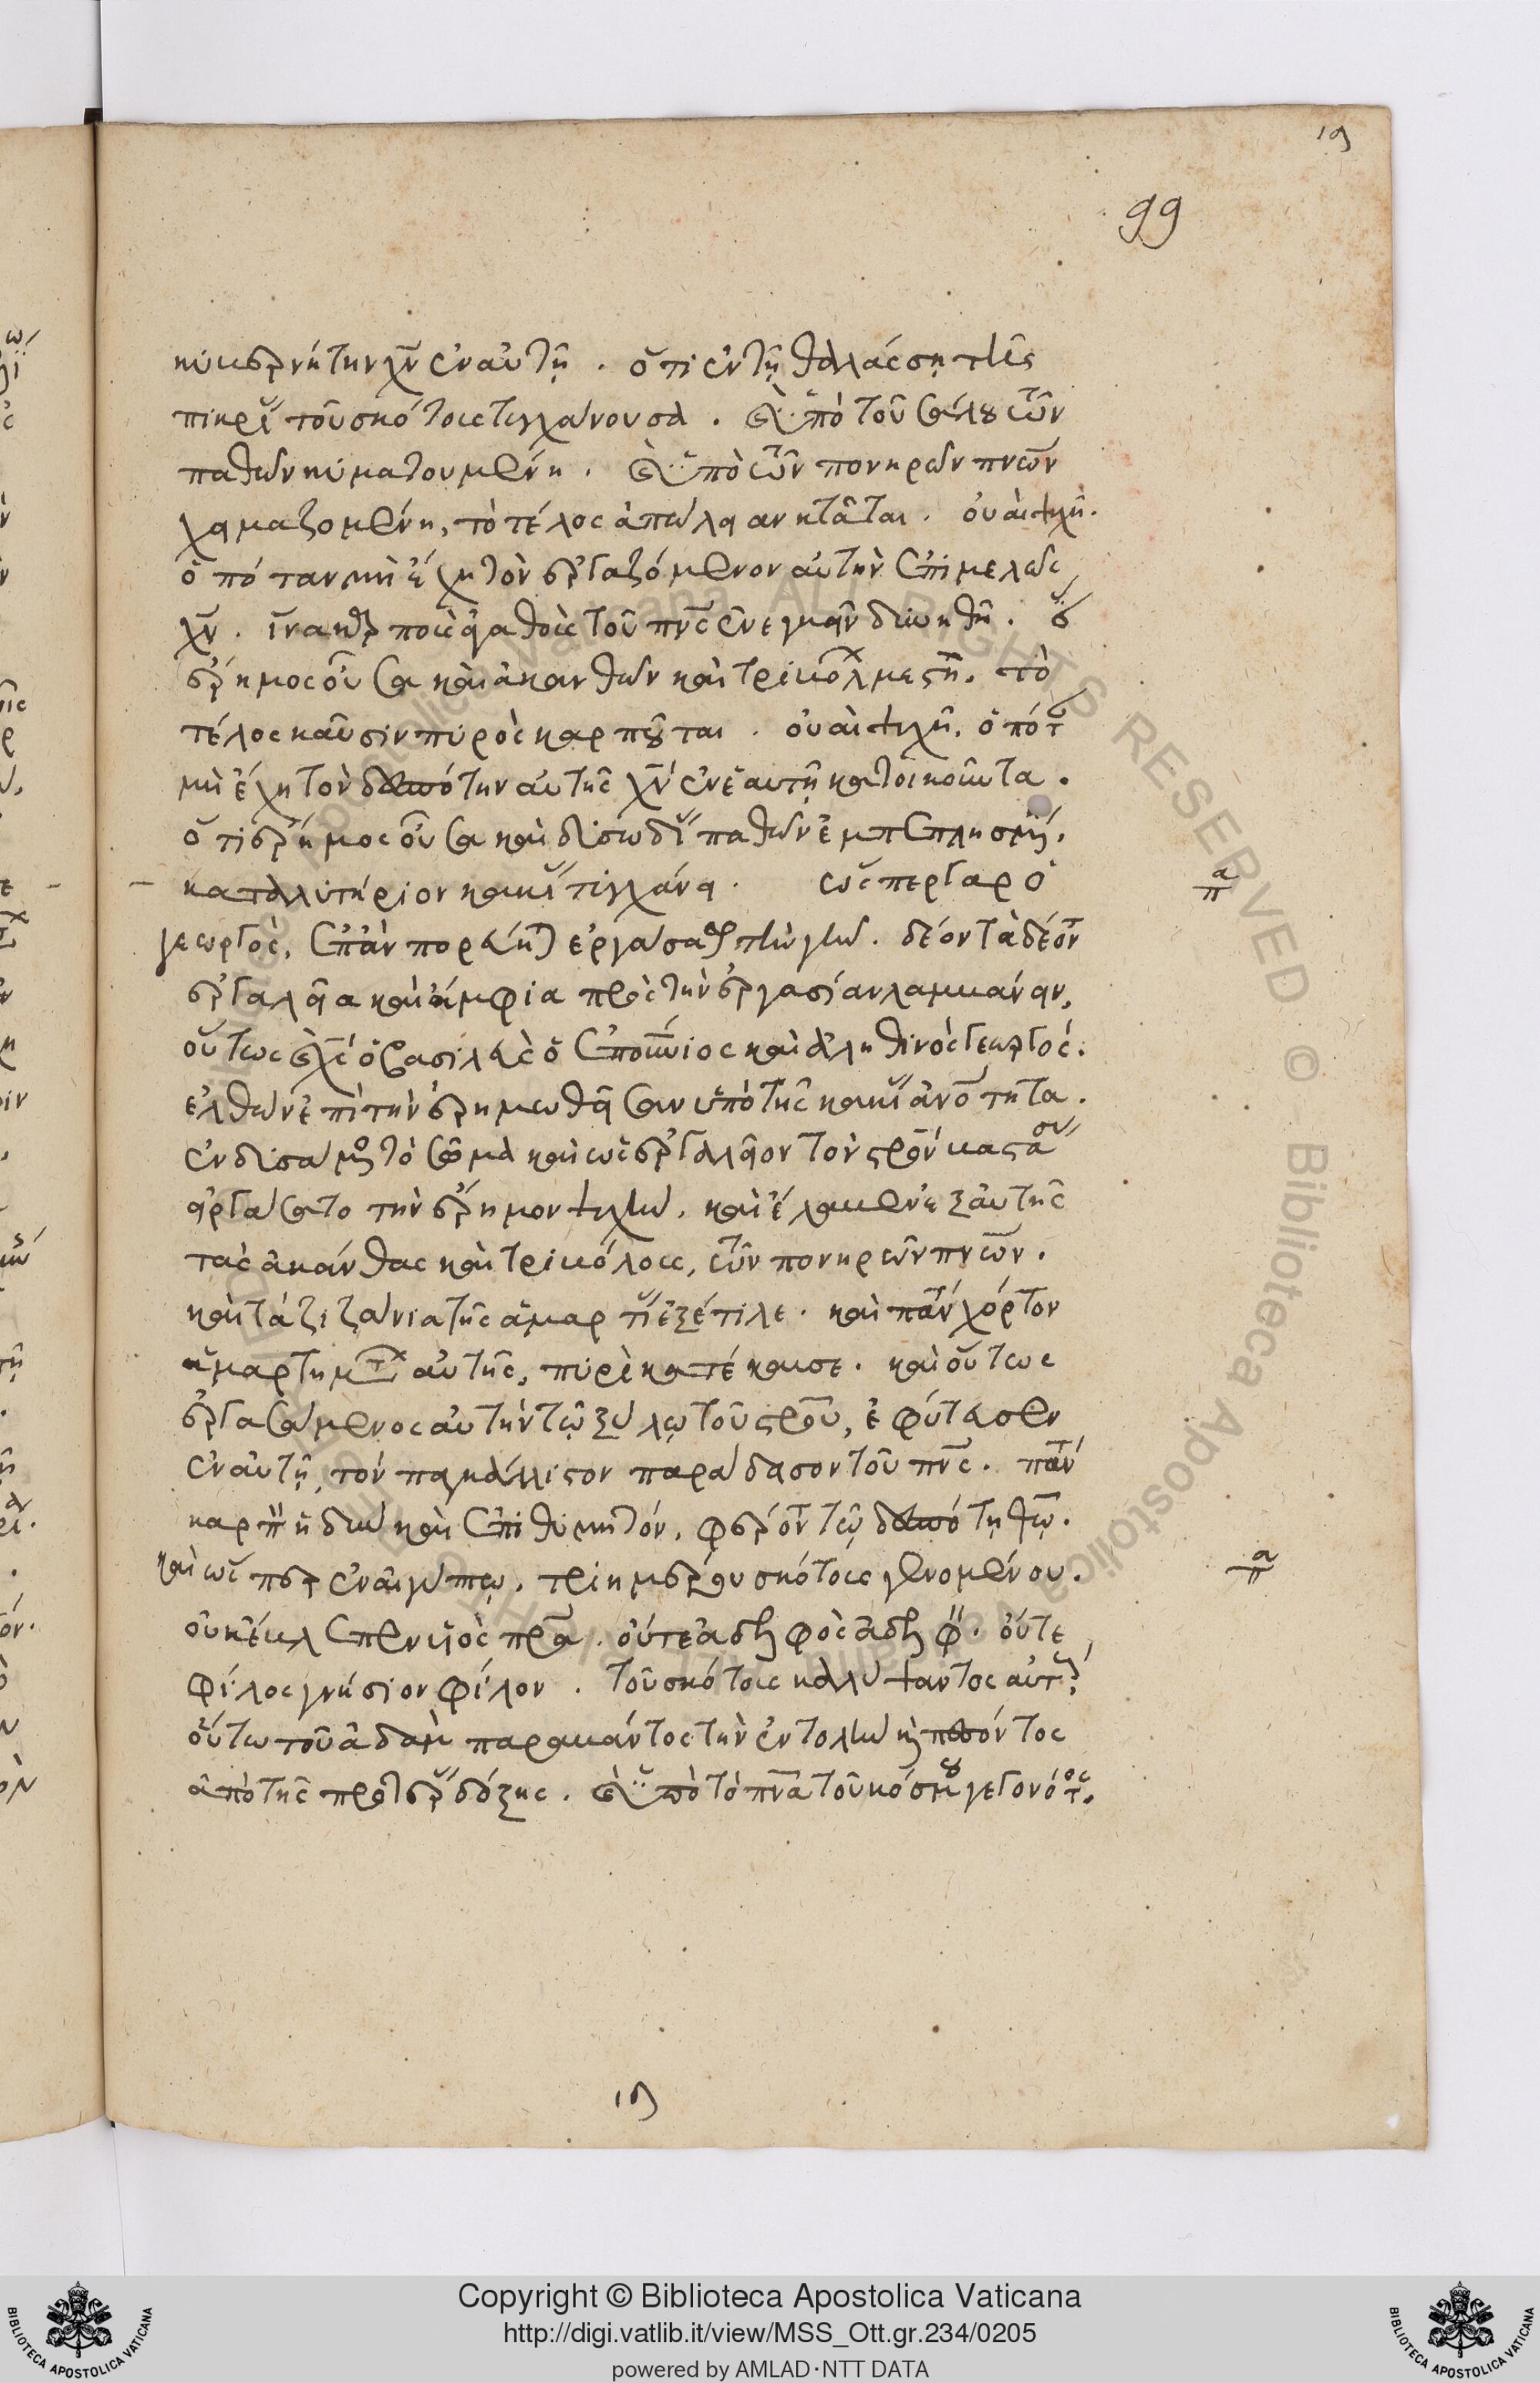 κυβερνήτην χν ἐν αὐτῇ. ὅτι ἐν τῇ θαλάσσῃ τῆς
πικρί τοῦ σκότους τυγχάνουσα. καὶ ὑπὸ τοῦ σάλου τῶν
παθῶν κυματουμένη. καὶ ὑπὸ τῶν πονηρῶν πνων
χειμαζομένη, τὸ τέλος ἀπώλειαν κτᾶται. οὐαὶ ψυχῇ.
ὁπόταν μὴ ἔχῃ τὸν ἐργαζόμενον αὐτὴν ἐπιμελῶς
χν. ἵνα καρποὺς ἀγαθοὺς τοῦ πνς ἐνεγκεῖν δυνηθῇ.
ἔρημος οὖσα καὶ ἀκανθῶν καὶ τριβόλ μεστή. τὸ
τέλος καῦσιν πυρὸς καρποῦται. οὐαὶ ψυχῇ, ὁπότ
μὴ ἔχῃ τὸν δεσπότην αὐτῆς χν ἐν ἑαυτῇ κατοικοῦντα.
ὅτι ἔρημος οὖσα καὶ δυσωδί παθῶν ἐμπεπλησμέ.
καταλυτήριον κακί τυγχάνει. ὥσπερ γὰρ ὁ
γεωργὸς, ἐπὰν πορεύηται ἐργάσασθαι τὴν γῆν. δέον τὰ δέοντ
ἐργαλεῖα καὶ ἀμφία πρὸς τὴν ἐργασίαν λαμβάνειν,
οὕτως καὶ χς ὁ βασιλεὺς ὁ ἐπουνιος καὶ ἀληθινὸς γεωργός.
ἐλθὼν ἐπὶ τὴν ἐρημωθεῖσαν ὑπὸ τῆς κακί ἀνοτητα.
ἐνδυσάμενος τὸ σῶμα καὶ ὡς ἐργαλεῖον τὸν στρον βαστάσ
εἰργάσατο τὴν ἔρημον ψυχήν. καὶ ἔλαβεν ἐξ αὐτῆς
τὰς ἀκάνθας καὶ τριβόλους, τῶν πονηρῶν πνων.
καὶ τὰ ζιζάνια τῆς ἁμαρτί ἐξέτιλε. καὶ πάντ χόρτον
ἁμαρτημτ αὐτῆς, πυρὶ κατέκαυσε. καὶ οὕτως
ἐργασάμενος αὐτὴν τῷ ξύλῳ τοῦ στρου, ἐφύτευσεν
ἐν αὐτῇ, τὸν παγκάλλιστον παράδεισον τοῦ πνς. πάντ
καρπ ἡδὺν καὶ ἐπιθυμητόν, φέροντ τῷ δεσπότῃ θω.
καὶ ὥσπερ ἐν αἰγύπτῳ, τριημέρου σκότους γενομένου.
οὐκ ἔβλεπεν υἱὸς πρα. οὔτε ἀδελφὸς ἀδελφ. οὔτε
φίλος γνήσιον φίλον. τοῦ σκότους καλύψαντος αὐτ,
οὕτω τοῦ ἀδὰμ παραβάντος τὴν ἐντολὴν καὶ πεσόντος
ἀπὸ τῆς προτέρ δόξης. καὶ ὑπὸ τὸ πνα τοῦ κόσμου γεγονότος.
99
Copyright © Biblioteca Apostolica Vaticana
http://digi.vatlib.it/view/MSS_Ott.gr.234/0205
powered by AMLAD·NTT DATA